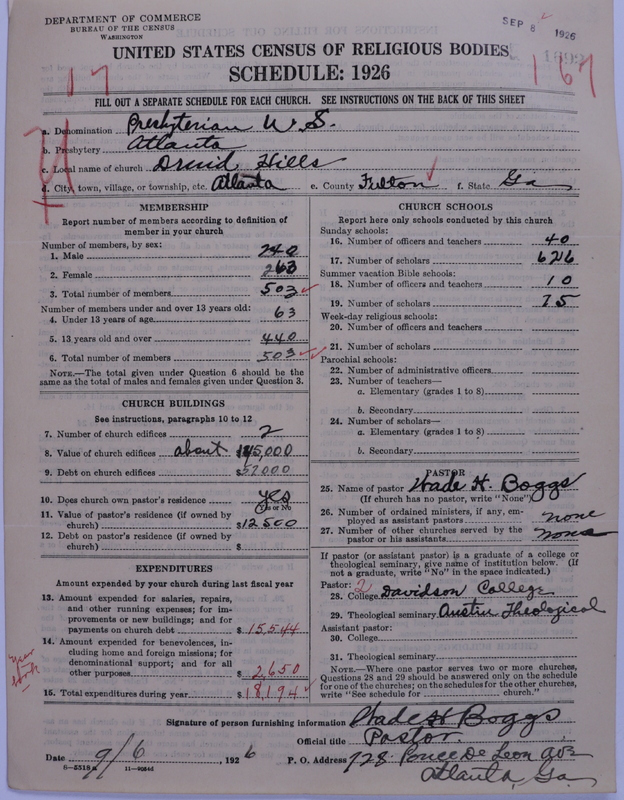 DEPARTMENT OF COMMERCE
BUREAU OF THE CENSUS
WASHINGTON
SEP 8 1926
UNITED STATES CENSUS OF RELIGIOUS BODIES
SCHEDULE: 1926
17
167
FILL OUT A SEPARATE SCHEDULE FOR EACH CHURCH. SEE INSTRUCTIONS ON THE BACK OF THIS SHEET
a. Denomination Presbyterian U.S.
b. Presbytery Atlanta
c. Local name of church Druid Hills
d. City, town, village, or township, etc. Atlanta e. County Fulton f. State Ga
MEMBERSHIP
Report number of members according to definition of
member in your church
Number of members, by sex:
1. Male 240
2. Female 263
3. Total number of members 503
Number of members under and over 13 years old:
4. Under 13 years of age 63
5. 13 years old and over 440
6. Total number of members 503
NOTE.—The total given under Question 6 should be
same as the total of males and females given under Question 3.
CHURCH BUILDINGS
See instructions, paragraphs 10 to 12
7. Number of church edifices 2
8. Value of church edifices about $ 5,000
9. Debt on church edifices $57000
10. Does church own pastor's residence yes
Yes or No
11. Value of pastor's residence (if owned by
church) $12500
12. Debt on pastor's residence (if owned by
church) $
EXPENDITURES
Amount expended by your church during last fiscal year
13. Amount expended for salaries, repairs,
and other running expenses; for im-
provements or new buildings; and for
payments on church debt $ 15,544
14. Amount expended for benevolences, in-
cluding home and foreign missions; for
denominational support; and for all
other purposes $ 2,650
15. Total expenditures during year $ 18,194
Year
book
CHURCH SCHOOLS
Report here only schools conducted by this church
Sunday schools:
16. Number of officers and teachers 40
17. Number of scholars 626
Summer vacation Bible schools:
18. Number of officers and teachers 10
19. Number of scholars 75
Week-day religious schools:
20. Number of officers and teachers
21. Number of scholars
Parochial schools:
22. Number of administrative officers
23. Number of teachers—
a. Elementary (grades 1 to 8)
b. Secondary
24. Number of scholars—
a. Elementary (grades 1 to 8)
b. Secondary
PASTOR
25. Name of pastor Wade H. Boggs
(If church has no pastor, write "None")
26. Number of ordained ministers, if any, em-
ployed as assistant pastors none
27. Number of other churches served by the
pastor or his assistants none
If pastor (or assistant pastor) is a graduate of a college or
theological seminary, give name of institution below. (If
not a graduate, write "No" in the space indicated.)
Pastor: 2
28. College Davidson College
29. Theological seminary Austin Theological
Assistant pastor:
30. College
31. Theological seminary
NOTE.—Where one pastor serves two or more churches,
Questions 28 and 29 should be answered only on the schedule
for one of the churches; on the schedules for the other churches,
write "See schedule for church."
Signature of person furnishing information Wade H Boggs
Official title Pastor
Date 9/6, 1926 P. O. Address 728 Ponce De Leon ave
8-5518a 11-9084d
Atlanta, Ga.